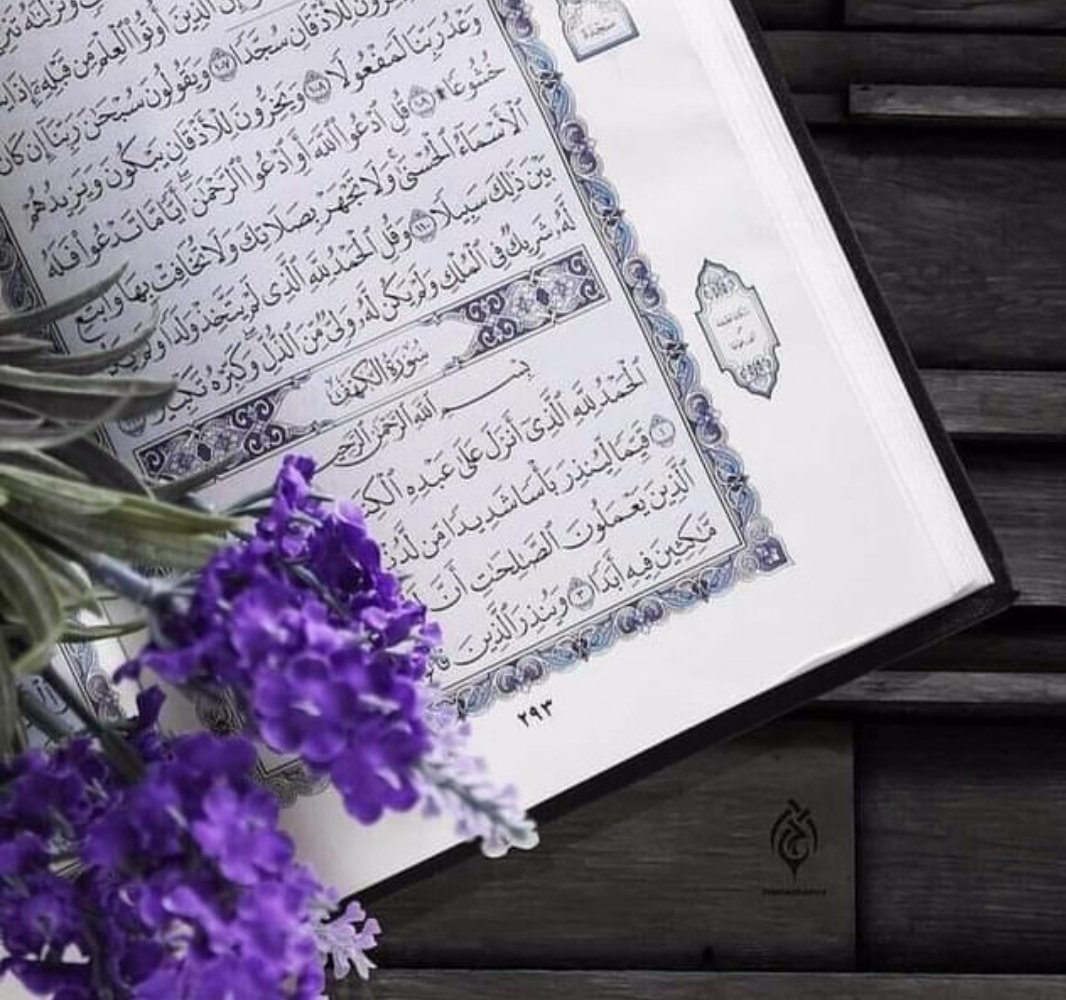 الَّذِينَ أُوتُوا۟ الْعِلْمَ مِن قَبْلِهِۦٓ إِذَا
لِلْأَذْقَانِ سُجَّدًا ١٠٧ وَيَقُولُونَ سُبْحَٰنَ رَبِّنَآ إِن كَانَ
وَعْدُ رَبِّنَا لَمَفْعُولًا ١٠٨ وَيَخِرُّونَ لِلْأَذْقَانِ يَبْكُونَ وَيَزِيدُهُمْ
خُشُوعًا ١٠٩ قُلِ ادْعُوا۟ اللَّهَ أَوِ ادْعُوا۟ الرَّحْمَٰنَ أَيًّا مَّا تَدْعُوا۟ فَلَهُ
الْأَسْمَآءُ الْحُسْنَىٰ وَلَا تَجْهَرْ بِصَلَاتِكَ وَلَا تُخَافِتْ بِهَا وَابْتَغِ
بَيْنَ ذَٰلِكَ سَبِيلًا ١١٠ وَقُلِ الْحَمْدُ لِلَّهِ الَّذِى لَمْ يَتَّخِذْ وَلَدًا وَلَمْ يَكُن
لَّهُۥ شَرِيكٌ فِى الْمُلْكِ وَلَمْ يَكُن لَّهُۥ وَلِىٌّ مِّنَ الذُّلِّ وَكَبِّرْهُ تَكْبِيرًا
سُورَةُ الْكَهْفِ
بِسْمِ اللَّهِ الرَّحْمَٰنِ الرَّحِيمِ
الْحَمْدُ لِلَّهِ الَّذِىٓ أَنزَلَ عَلَىٰ عَبْدِهِ الْكِتَٰ
١ قَيِّمًا لِّيُنذِرَ بَأْسًا شَدِيدًا مِّن لَّدُنْ
الَّذِينَ يَعْمَلُونَ الصَّٰلِحَٰتِ أَنَّ
مَّٰكِثِينَ فِيهِ أَبَدًا ٣ وَيُنذِرَ الَّذِينَ قَا
٢٩٣
سجدة